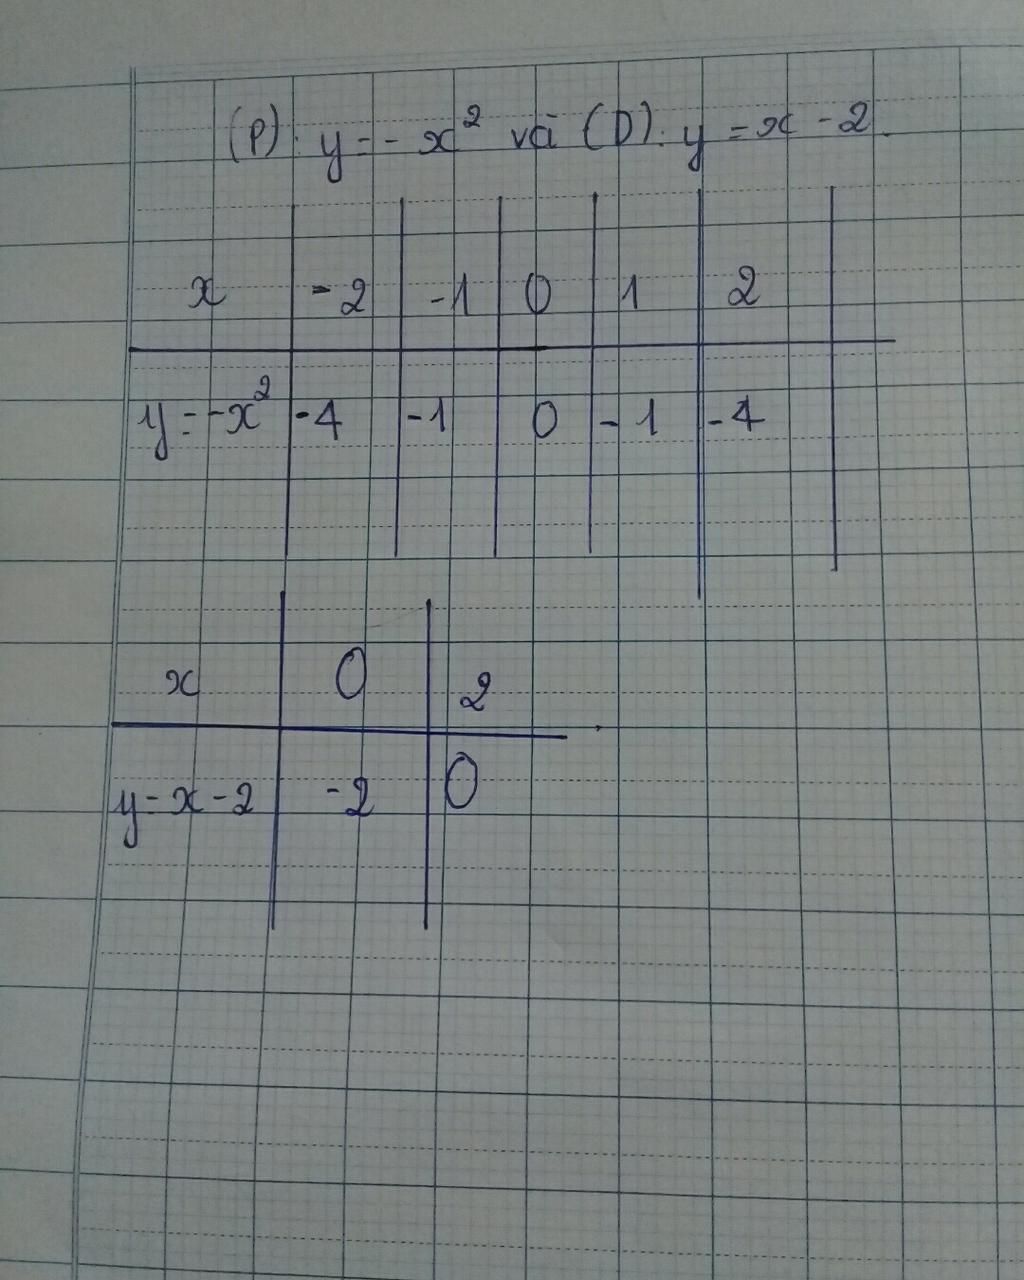 (P): y = -x² và (D): y = x - 2.
x -2 -1 0 1 2
y = -x² -4 -1 0 -1 -4
x 0 2
y = x - 2 -2 0